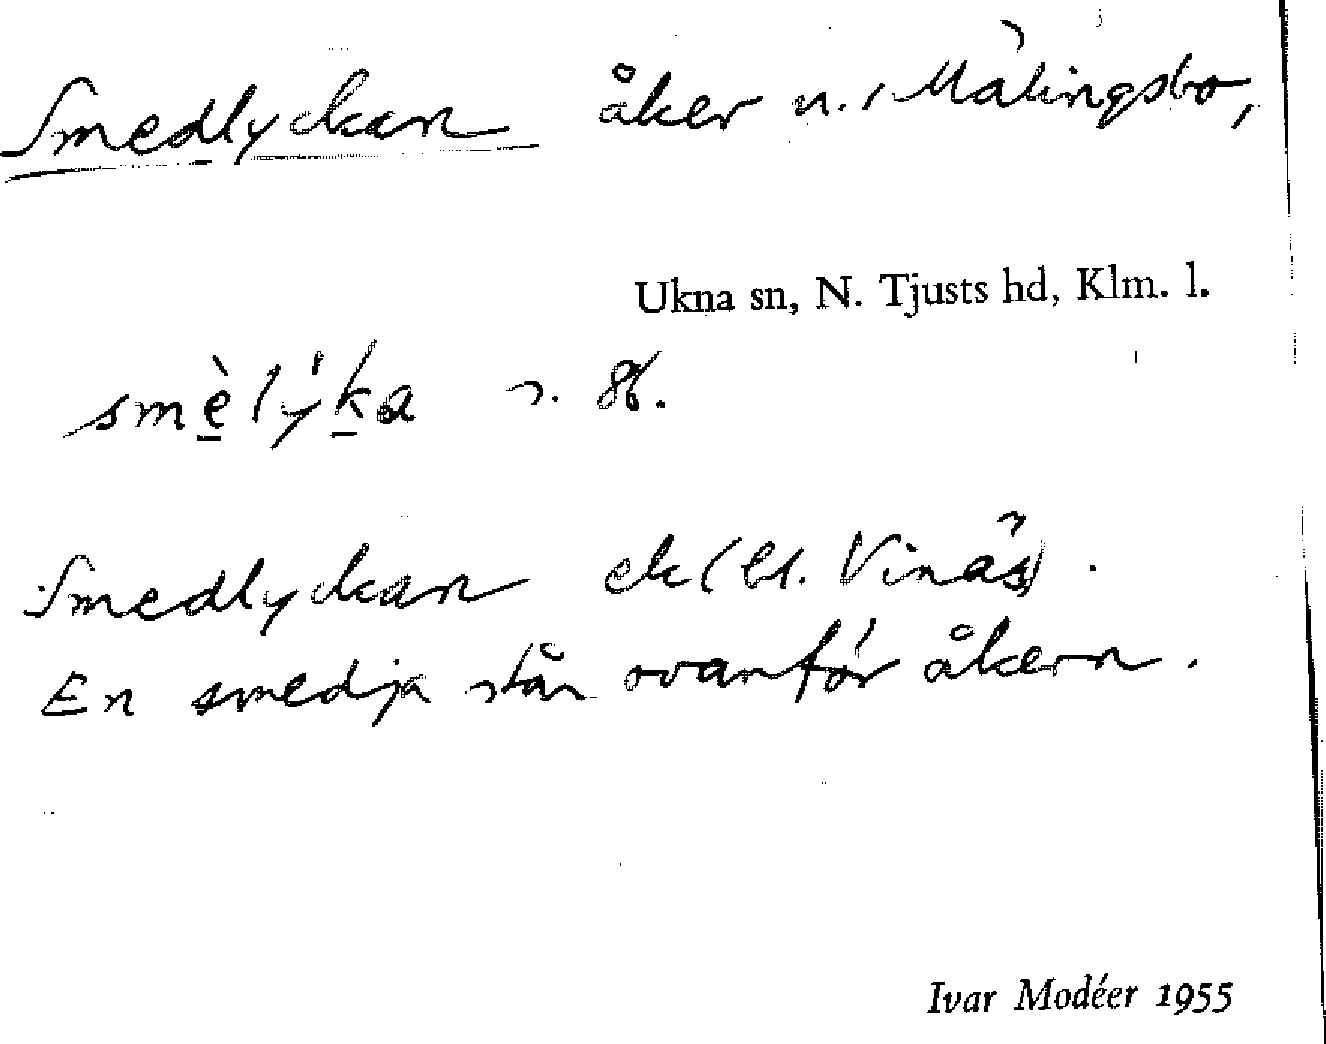 Smedlyckan åker n. Målingsbo,
Ukna sn, N. Tjusts hd, Klm. l.
smèlýka 86.
Smedlyckan ek (bl. Vinäs).
En smedja står ovanför åkern.
Ivar Modéer 1955